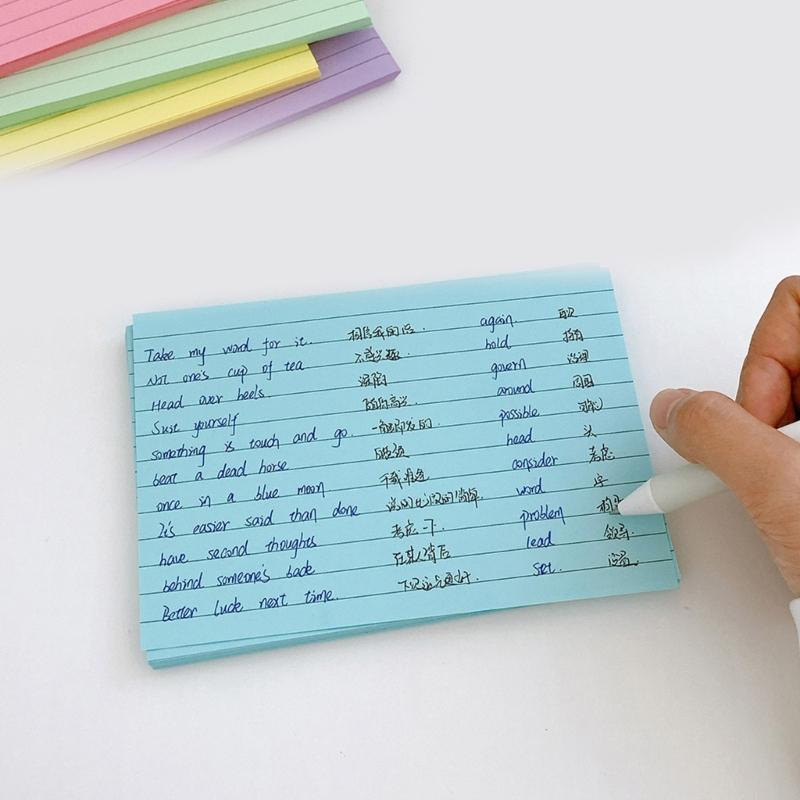 Take my word for it. 相信我的话. again
Not one's cup of tea 不感兴趣 hold
Head over heels. govern 治理
Suit yourself 随你高兴 around 周围
something is touch and go. 一触即发的. possible
beat a dead horse head 头
once in a blue moon 千载难逢 consider 考虑
It's easier said than done 说的比做的简单 word 字
have second thoughts 考虑一下. problem
behind someone's back 在某人背后 lead 领导
Better luck next time. 下次运气更好. set.